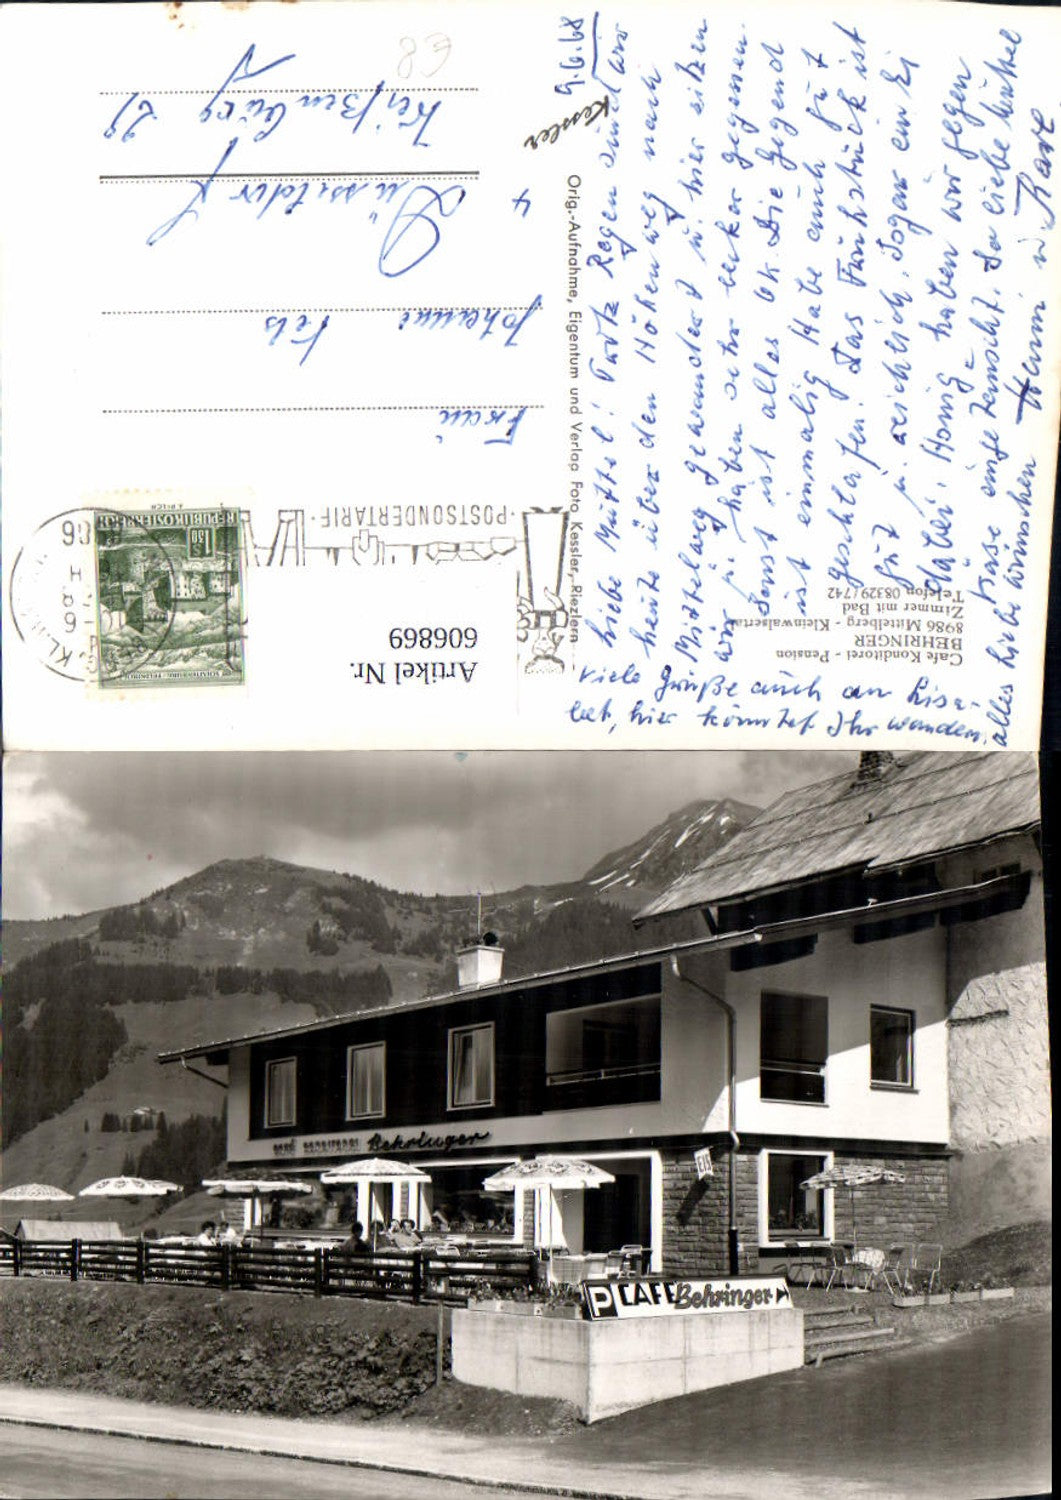 Cafe Konditorei - Pension
BEHRINGER
8986 Mittelberg - Kleinwalsertal
Zimmer mit Bad
Telefon 08329/742
9.6.68
Liebe Mutti! Trotz Regen sind wir
heute über den Höhenweg nach
Mittelberg gewandert u. hier sitzen
wir ja haben sehr lecker gegessen.
Sonst ist alles Ok. Die Gegend
ist einmalig Habe auch gut
geschlafen. Das Frühstück ist
gut u. reichlich. Sogar ein Ei
dabei. Honig haben wir gegen
Käse eingetauscht. So liebe
alles Liebe wünschen
Hanni u. Karl
Viele Grüße auch an Lisa-
bet, hier könntet Ihr wandern.
Orig.-Aufnahme, Eigentum und Verlag Foto Kessler, Riezlern
Kessler
·POSTSONDERTARIF·
REPUBLIK ÖSTERREICH
1.50
SCHATTENBURG · FELDKIRCH
Frau
Johanna Fels
4 Düsseldorf
Weißenburg 29
Artikel Nr.
606869
€8
CAFÉ KONDITOREI Behringer
EIS
P CAFE Behringer